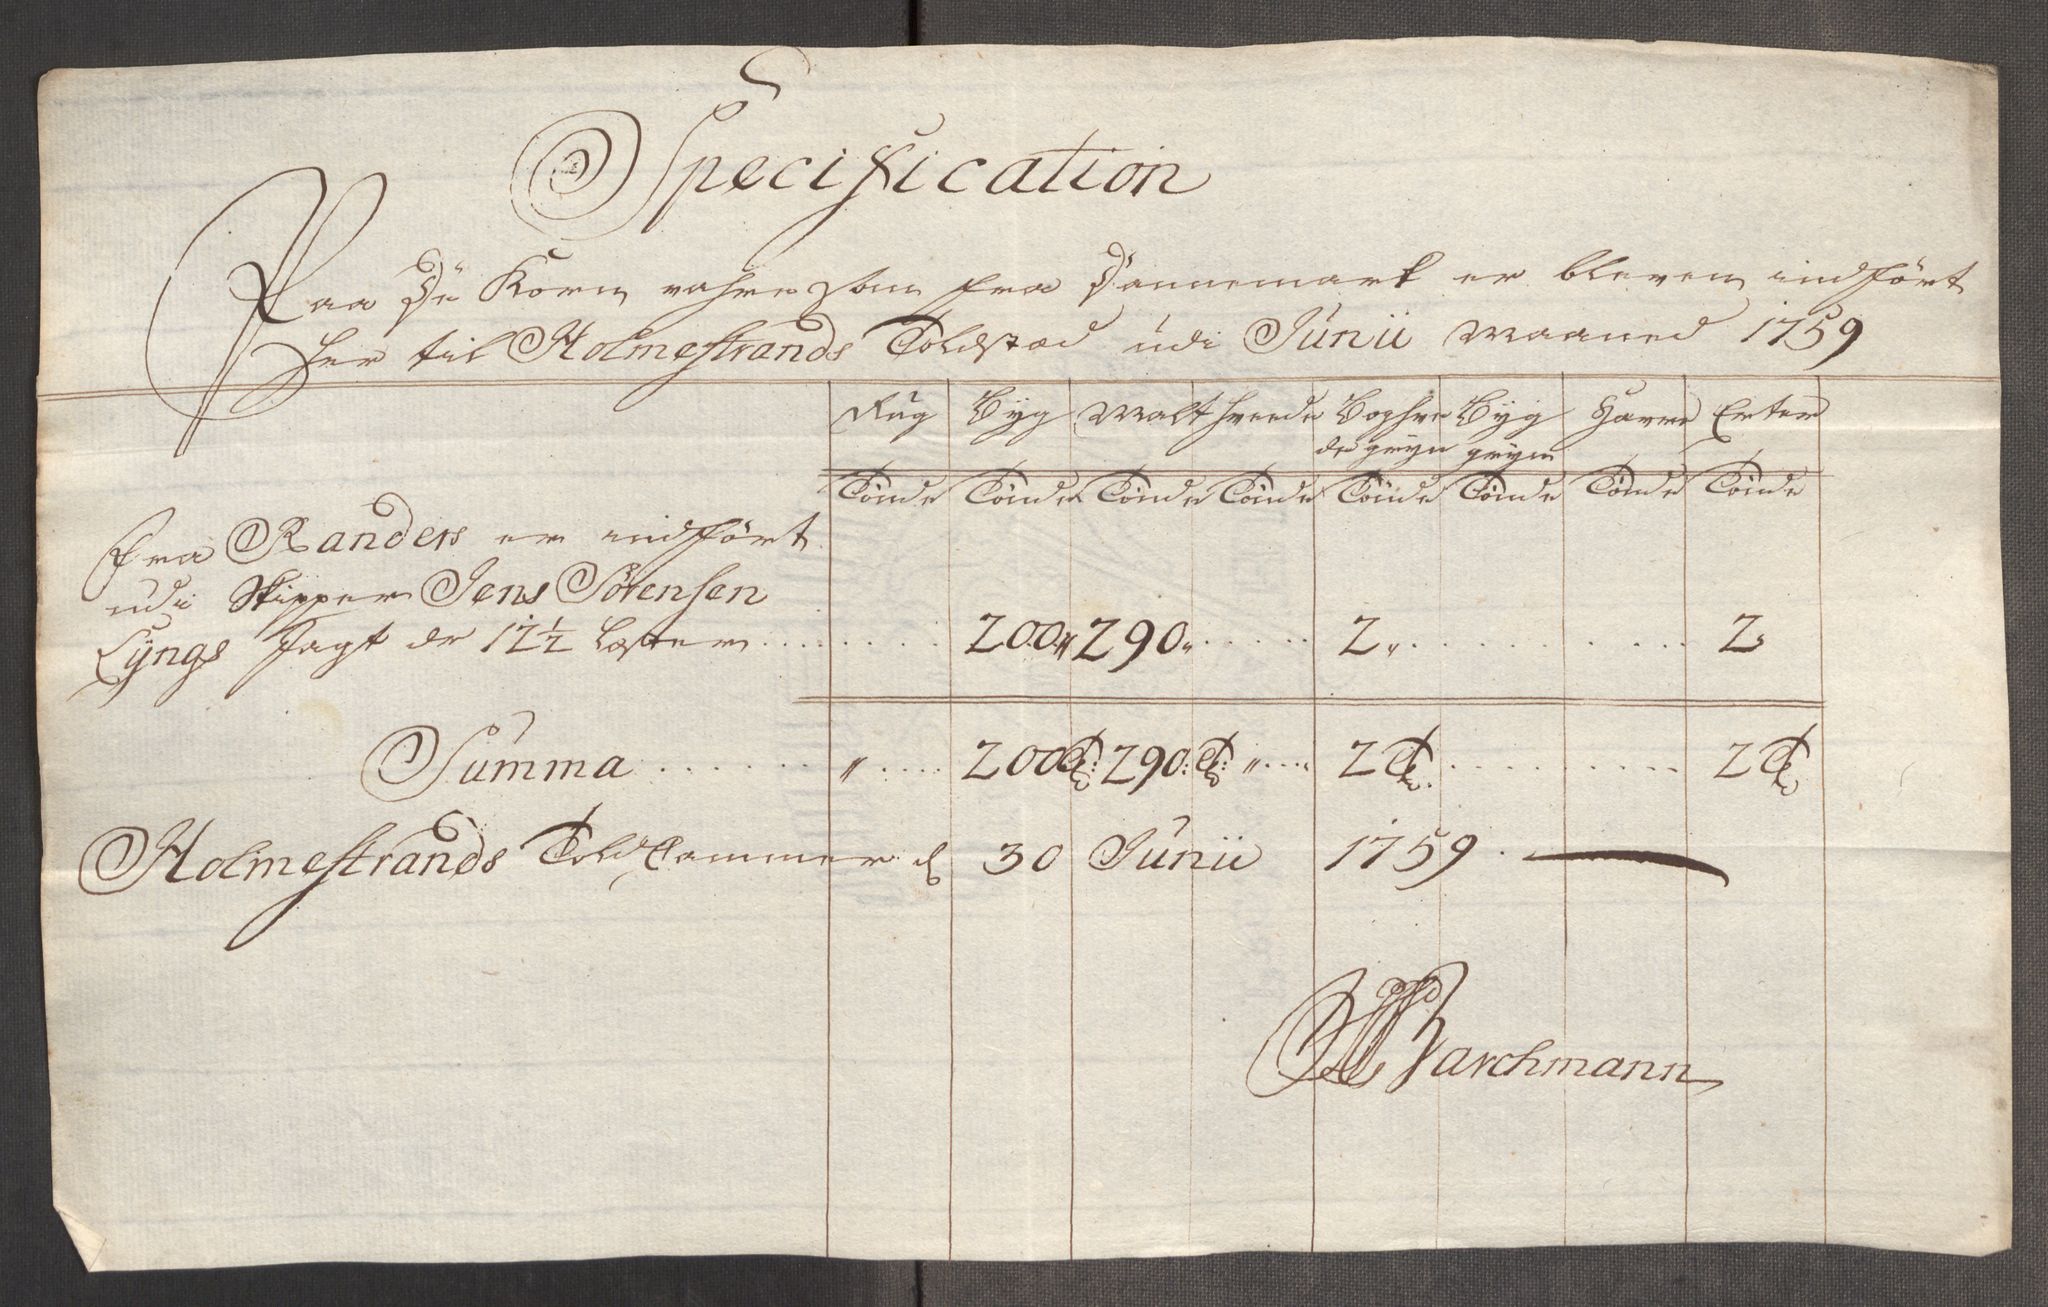 Specification
Paa De Korn vahre som fra Dannemark er bleven indført
her til Holmestrands Toldsted udi Junii Maaned 1759
Rug Byg Malt hvede Boghve Byg Havre Erter
de gryn gryn
Tönde Tönde Tönde Tönde Tönde Tönde Tönde Tönde
fra Randers er indført
udi Skipper Jens Sörensen
Lyngs Jagt dr 12½ Lester . . . . . . . 200 〃 290 〃 . . . . . 2 〃 . . . . . . . . . 2 〃
Summa . . . . . . 〃 . . . . 200 T: 290: T: 〃 . . . . 2 T . . . . . . . . . . 2 T
Holmestrands Told Cammer d 30 Junii 1759 .
Barchmann